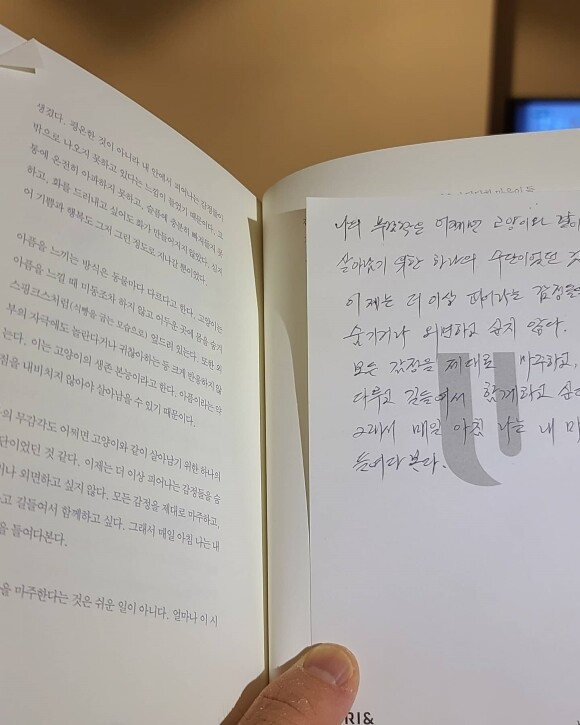 생겼다. 평온한 것이 아니라 내 안에서 피어나는 감정들이
밖으로 나오지 못하고 있다는 느낌이 들었기 때문이다. 고
통에 온전히 아파하지 못하고, 슬픔에 충분히 빠져들지 못
하고, 화를 드러내고 싶어도 화가 만들어지지 않았다. 심지
어 기쁨과 행복도 그저 그런 정도로 지나갈 뿐이었다.
아픔을 느끼는 방식은 동물마다 다르다고 한다. 고양이는
아픔을 느낄 때 미동조차 하지 않고 어두운 곳에 몸을 숨겨
스핑크스처럼(식빵을 굽는 모습으로) 엎드려 있는다. 또한 외
부의 자극에도 놀란다거나 귀찮아하는 등 크게 반응하지 않
는다. 이는 고양이의 생존 본능이라고 한다. 아픔이라는 약
점을 내비치지 않아야 살아남을 수 있기 때문이다.
의 무감각도 어쩌면 고양이와 같이 살아남기 위한 하나의
단이었던 것 같다. 이제는 더 이상 피어나는 감정들을 숨
거나 외면하고 싶지 않다. 모든 감정을 제대로 마주하고,
고 길들여서 함께하고 싶다. 그래서 매일 아침 나는 내
을 들여다본다.
을 마주한다는 것은 쉬운 일이 아니다. 얼마나 이 시
나의 무감각은 어쩌면 고양이와 같이
살아남기 위한 하나의 수단이었던 것
이제는 더 이상 피어나는 감정들을
숨기거나 외면하고 싶지 않다.
모든 감정을 제대로 마주하고,
다루고 길들여서 함께하고 싶다
그래서 매일 아침 나는 내 마
들여다 본다.
RI&